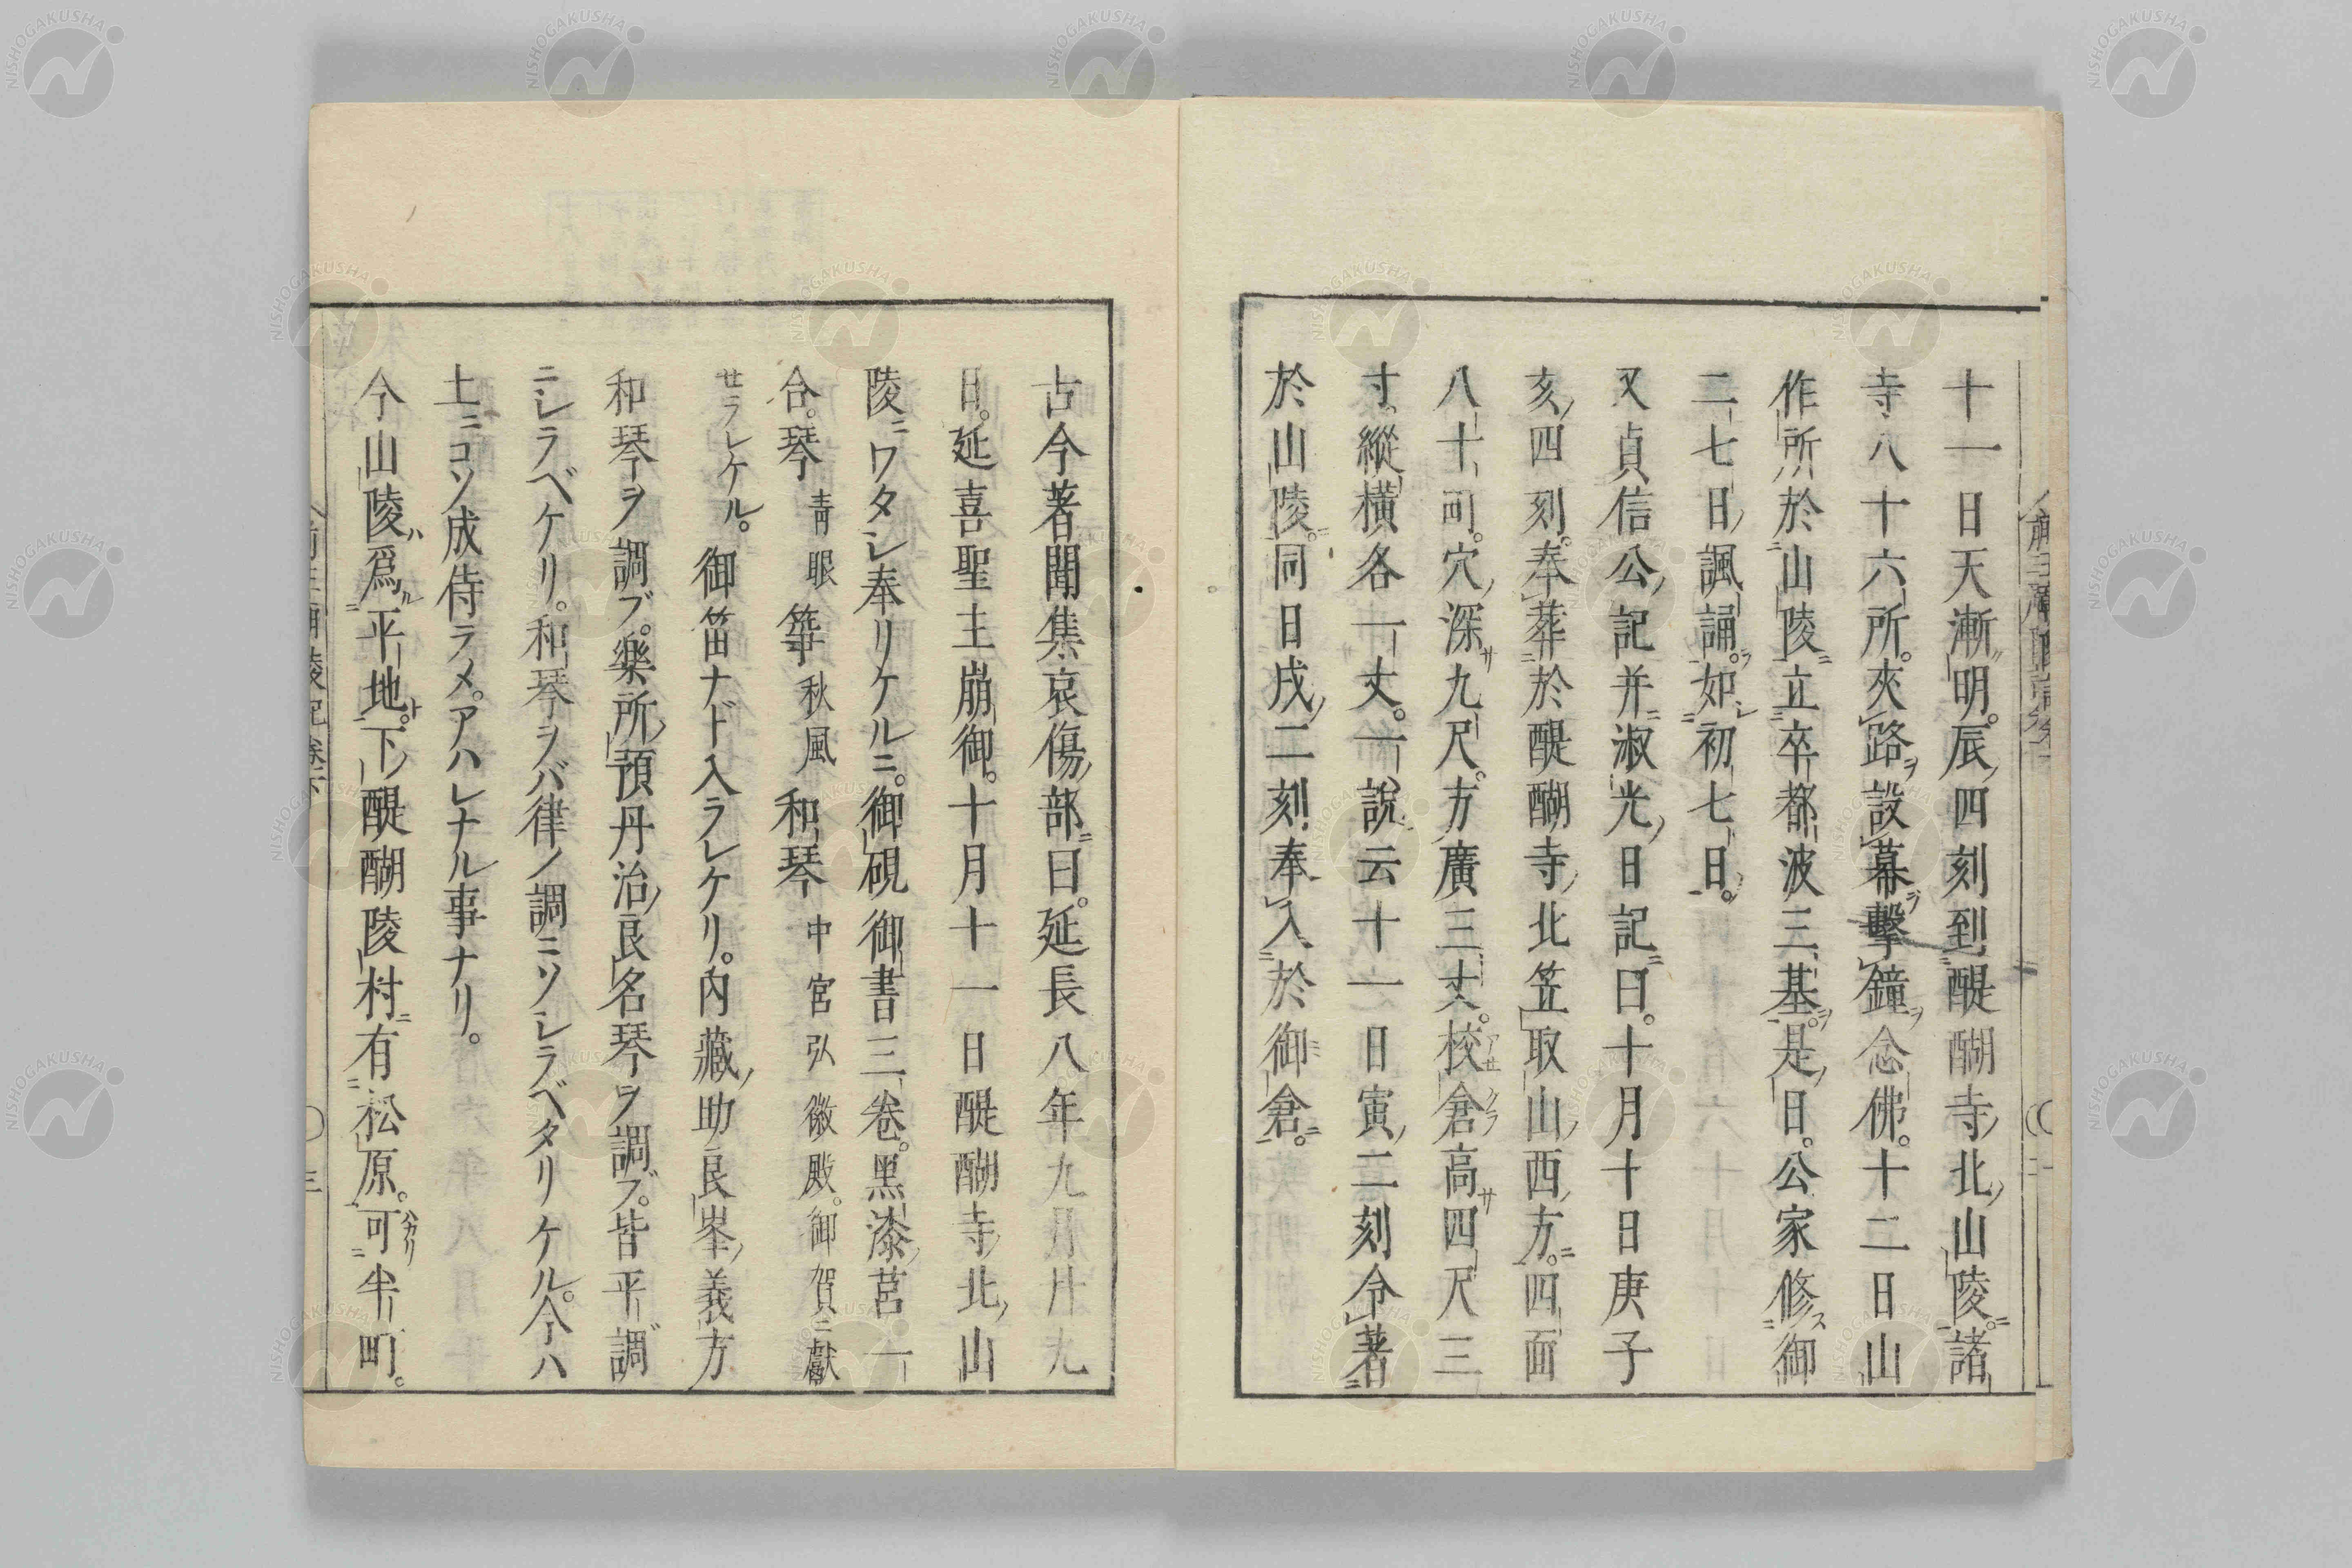 十一日天漸明。辰ノ四刻到醍醐寺ノ北ノ山陵ニ。諸
寺八十六所。夾路ヲ設幕ヲ擊鐘ヲ念佛。十二日山
作所ノ於山陵ニ立卒都波三基ヲ。是ノ日。公家修ス御
二七日ノ諷誦ヲ。如シ初七日ノ。
又貞信公ノ記并ニ淑光ノ日記ニ曰。十月十日庚子
亥ノ四刻。奉葬於醍醐寺ノ北笠取山ノ西ノ方ニ。四面
八十町。穴ノ深サ九尺。方廣三丈。校倉高サ四尺三
寸。縱橫各一丈。一說云十一日寅ノ二刻令著
於山陵ニ。同日戌ノ二刻奉入於御倉ニ。
古今著聞集哀傷ノ部ニ曰。延長八年九月廿九
日。延喜聖主崩御。十月十一日醍醐寺ノ北ノ山
陵ニワタシ奉リケルニ。御硯御書三卷。黑漆ノ莒一
合。琴 靑眼 箏 秋風 和琴 中宮弘徽殿。御賀ニ獻
セラレケル。 御笛ナド入ラレケリ。內藏ノ助良岑ノ義方
和琴ヲ調ブ。樂所ノ預丹治ノ良名琴ヲ調ブ。皆平調
ニシラベケリ。和琴ヲバ律ノ調ニソシラベタリケル。今ハ
土ニコソ成侍ラメ。アハレナル事ナリ。
今山陵ハ爲ル平地ト。下ノ醍醐陵村ニ有松原。可ハカリ半町。